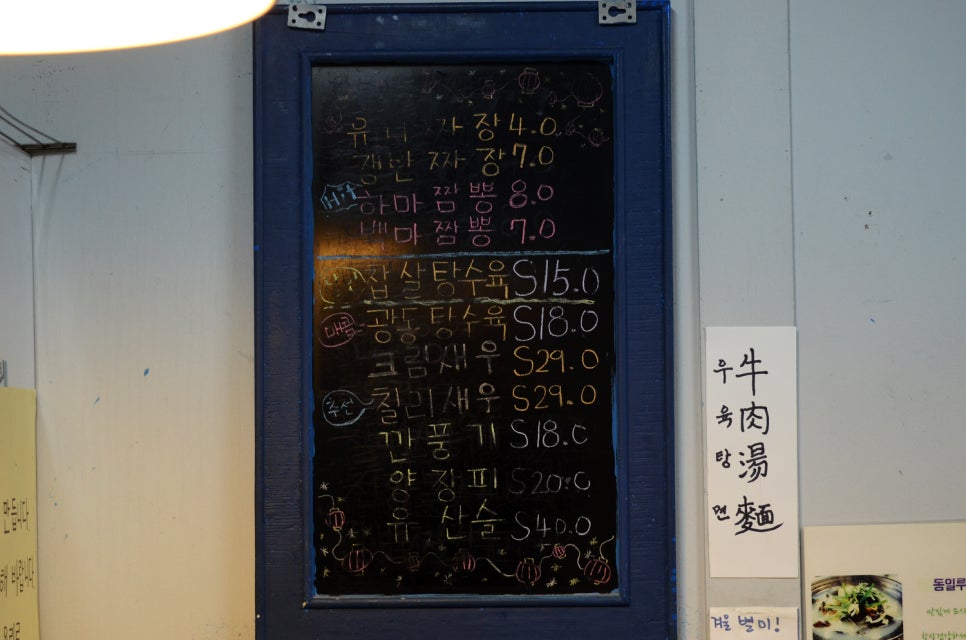 유니자장 4.0
쟁반짜장 7.0
Hit
하마짬뽕 8.0
백마짬뽕 7.0
찹쌀탕수육 S15.0
매콤
광동탕수육 S18.0
크림새우 S29.0
추천
칠리새우 S29.0
깐풍기 S18.0
양장피 S20.0
유산슬 S40.0
牛肉湯麵
우육탕면
겨울 별미!
만듭니다.
바랍니다.
동일루